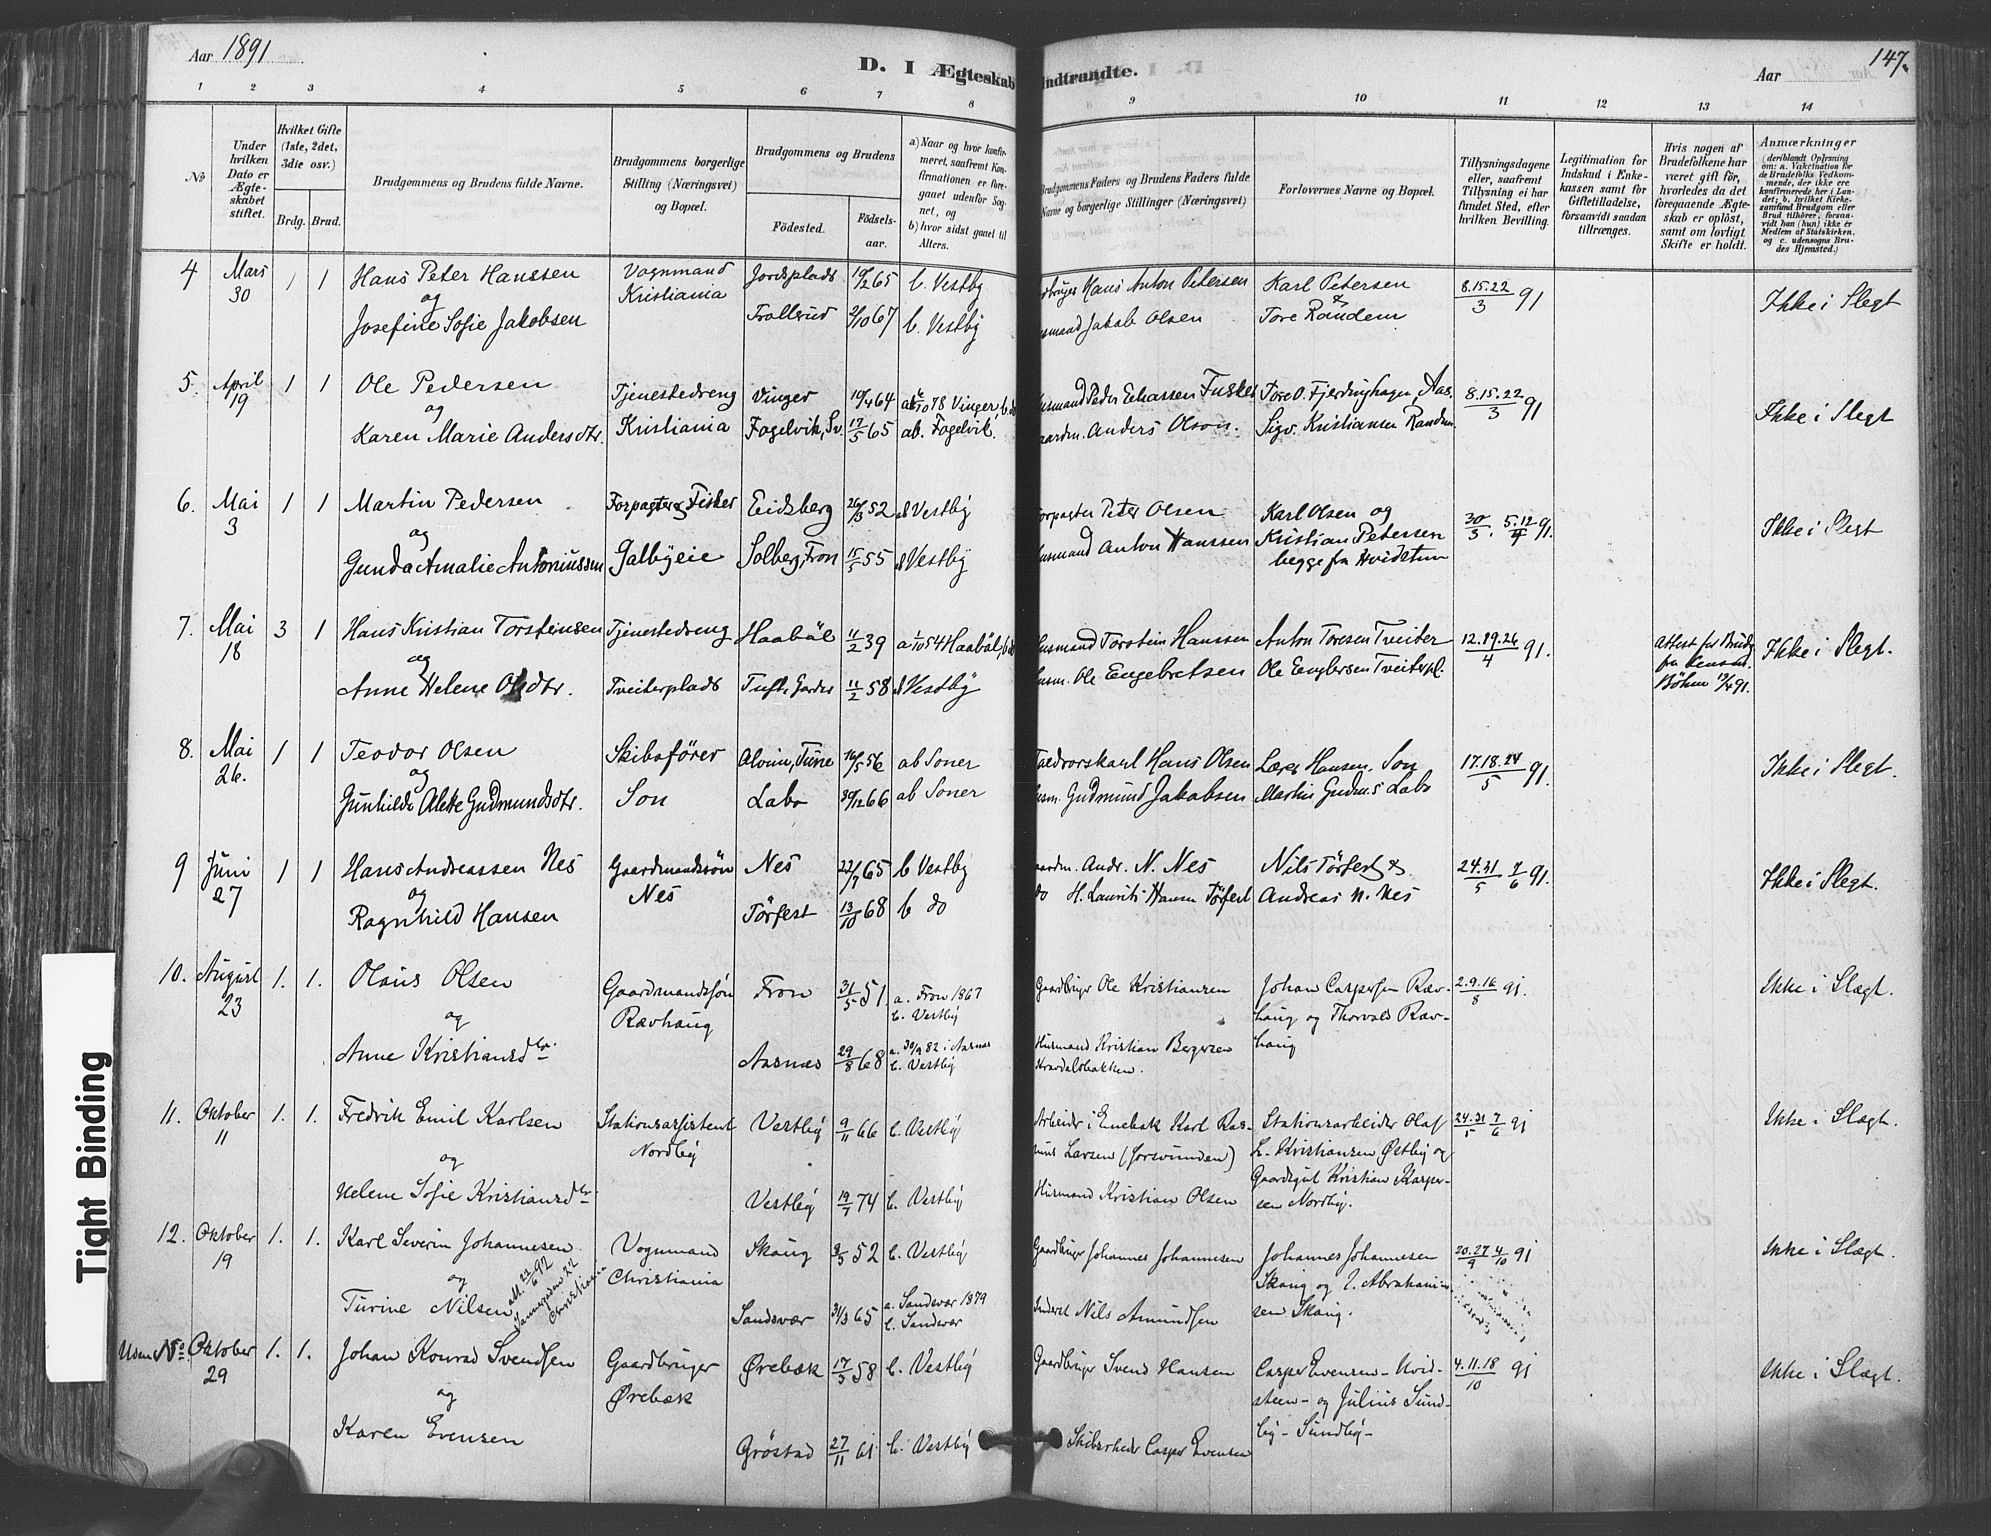 Aar 1891
D. I Ægteskab Indtrandte.
Aar
147.
1 2 3 4 5 6 7 8 9 10 11 12 13 14
No
Under hvilken Dato er Ægteskabet stiftet.
Hvilket Gifte (1ste, 2det, 3die osv.)
Brdg. Brud.
Brudgommens og Brudens fulde Navne.
Brudgommens borgerlige Stilling (Næringsvei) og Bopæl.
Brudgommens og Brudens
Födested. Födselsaar.
a) Naar og hvor konfirmeret, saafremt Konfirmationen er foregaaet udenfor Sognet, og
b) hvor sidst gaaet til Alters.
Brudgommens Faders og Brudens Faders fulde Navne og borgerlige Stillinger (Næringsvei)
Forlovernes Navne og Bopæl.
Tillysningsdagene eller, saafremt Tillysning ei har fundet Sted, efter hvilken Bevilling.
Legitimation for Indskud i Enkekassen samt for Giftetilladelse, forsaavidt saadan tiltrænges.
Hvis nogen af Brudefolkene har været gift för, hvorledes da det foregaaende Ægteskab er oplöst, samt om lovligt Skifte er holdt.
Anmærkninger
(deriblandt Oplysning om: a. Vakcination for Brudefolks Vedkommende, der ikke ere konfirmerede her i Landet; b. hvilket Kirkesamfund Brudgom eller Brud tilhörer, forsaavidt han (hun) ikke er Medlem af Statskirken, og c. udensogns Brudes Hjemsted.)
4 Mars 30 1 1 Hans Peter Hanssen Vognmand Jordsplads 19/2 65 b. Vestby Hans Anton Petersen Karl Petersen 8.15.22/3 91 Ikke i Slegt
og Kristiania &
Josefine Sofie Jakobsen Trollerud 2/10 67 b. Vestby Husmand Jakob Olsen Tore Randem
5. April 19 1 1 Ole Pedersen Tjenestedreng Vinger 19/4 64 78 Vinger, b. do Husmand Peder Tore O. Fjerdinghagen, Aas. 8.15.22/3 91 Ikke i Slegt
og
Karen Marie Andersdtr. Kristiania Fogelvik, Sv. 17/5 65 ab. Fogelvik. Gaardm. Anders Olson. Sigv. Kristiansen Randem
6. Mai 3 1 1 Martin Pedersen Forpagter & Fisker Eidsberg 26/3 52 Vestby Forpagter Peter Olsen Karl Olsen og 30/3. 5.12/4 91. Ikke i Slegt
og
Gunda Amalie Antoniussen Galbyeie Solberg, Fron 15/5 55 Vestby Husmand Anton Hanssen Kristian Petersen
begge fra Hvidstein
7. Mai 18 3 1 Hans Kristian Torsteinsen Tjenestedreng Haaböl 11/2 39 a 1/10 54 Haaböl, b. do Husmand Torstein Hanssen Anton Toresen Tveiter 12.19.26/4 91. Attest for Brudg. fra Böhm 13/4 91. Ikke i Slegt.
og
Anne Helene Olsdtr. Tveiterplads 11/2 58 Vestby Husm. Ole Engebretsen Ole Englersen Tveiterpl.
8. Mai 26. 1 1 Teodor Olsen Skibsförer Alvim, Tune 16/5 56 ab Soner Hans Olsen Lars Hansen, Son 17.18.24/5 91. Ikke i Slegt.
og
Gunhilde Alette Gudmundsdtr. Son Labo 30/12 66 ab Soner Husm. Gudmund Jakobsen Martin Gudm.s Labo
9 Juni 27 1 1 Hans Andreassen Nes Gaardmandssön Nes 22/7 65 b Vestby Gaardm. Andr. N. Nes Nils Törfest & 24.31/5 7/6 91. Ikke i Slegt.
og Nes
Ragnhild Hansen Törfest 13/10 68 b do do H. Laurits Hansen Törfest Andreas N. Nes
10. August 23 1. 1. Olaus Olsen Gaardmandssön Fron 31/5 51 a. Fron 1867 b. Vestby Gaardbruger Ole Kristiansen Johan Caspersen Ravhaug og Thorvald Ravhaug 2.9.16/8 91. Ikke i Slægt.
og Ravhaug
Anne Kristiansdtr. Aasnæs 29/8 68 a. 30/9 82 i Aasnæs b. Vestby Husmand Kristian Bergersen Kravdalsbakken.
11. Oktober 11 1. 1. Fredrik Emil Karlsen Stationsassistent Vestby 9/11 66 b. Vestby Arbeider i Enebak Karl Rasmus Larsen (forsvunden) Stationsarbeider Olaf L. Kristiansen Østby og Gaardsgut Kristian Kaspersen Nordby. 24.31/5 7/6 91 Ikke i Slægt.
og Nordby
Helene Sofie Kristiansdtr. Vestby 19/7 74 b. Vestby Husmand Kristian Olsen
12. Oktober 19 1. 1. Karl Severin Johannesen Vognmand Skaug 9/5 52 b. Vestby Gaardbruger Johannes Johannesen Johannes Johannesen Skaug og I. Abrahamsen Skaug. 20.27/9 4/10 91 Ikke i Slægt.
og Christiania
Turine Nilsen att. 23/6 92 Christiania Sandsvær 31/3 65 a. Sandsvær 1879 b. Sandsvær Nils Amundsen
Uden No. Oktober 29 1. 1. Johan Konrad Svendsen Gaardbruger Ørebæk 17/3 58 b. Vestby Gaardbruger Svend Hansen Casper Evensen - Hvidsteen - og Julius Sundby - Sundby - 4.11.18/10 91 Ikke i Slægt.
og Ørebæk
Karen Evensen Gröstad 27/11 61 b. Vestby Skibsrheder Casper Evensen
Tight Binding